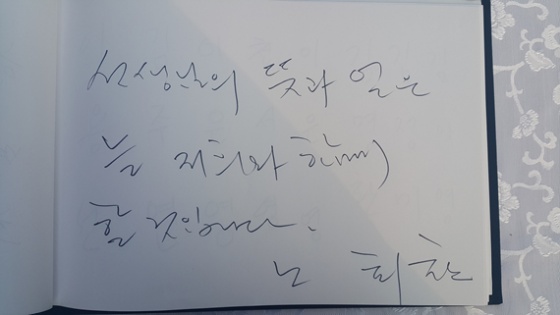 선생님의 뜻과 얼은
늘 저희와 함께
할 것입니다.
노 회찬